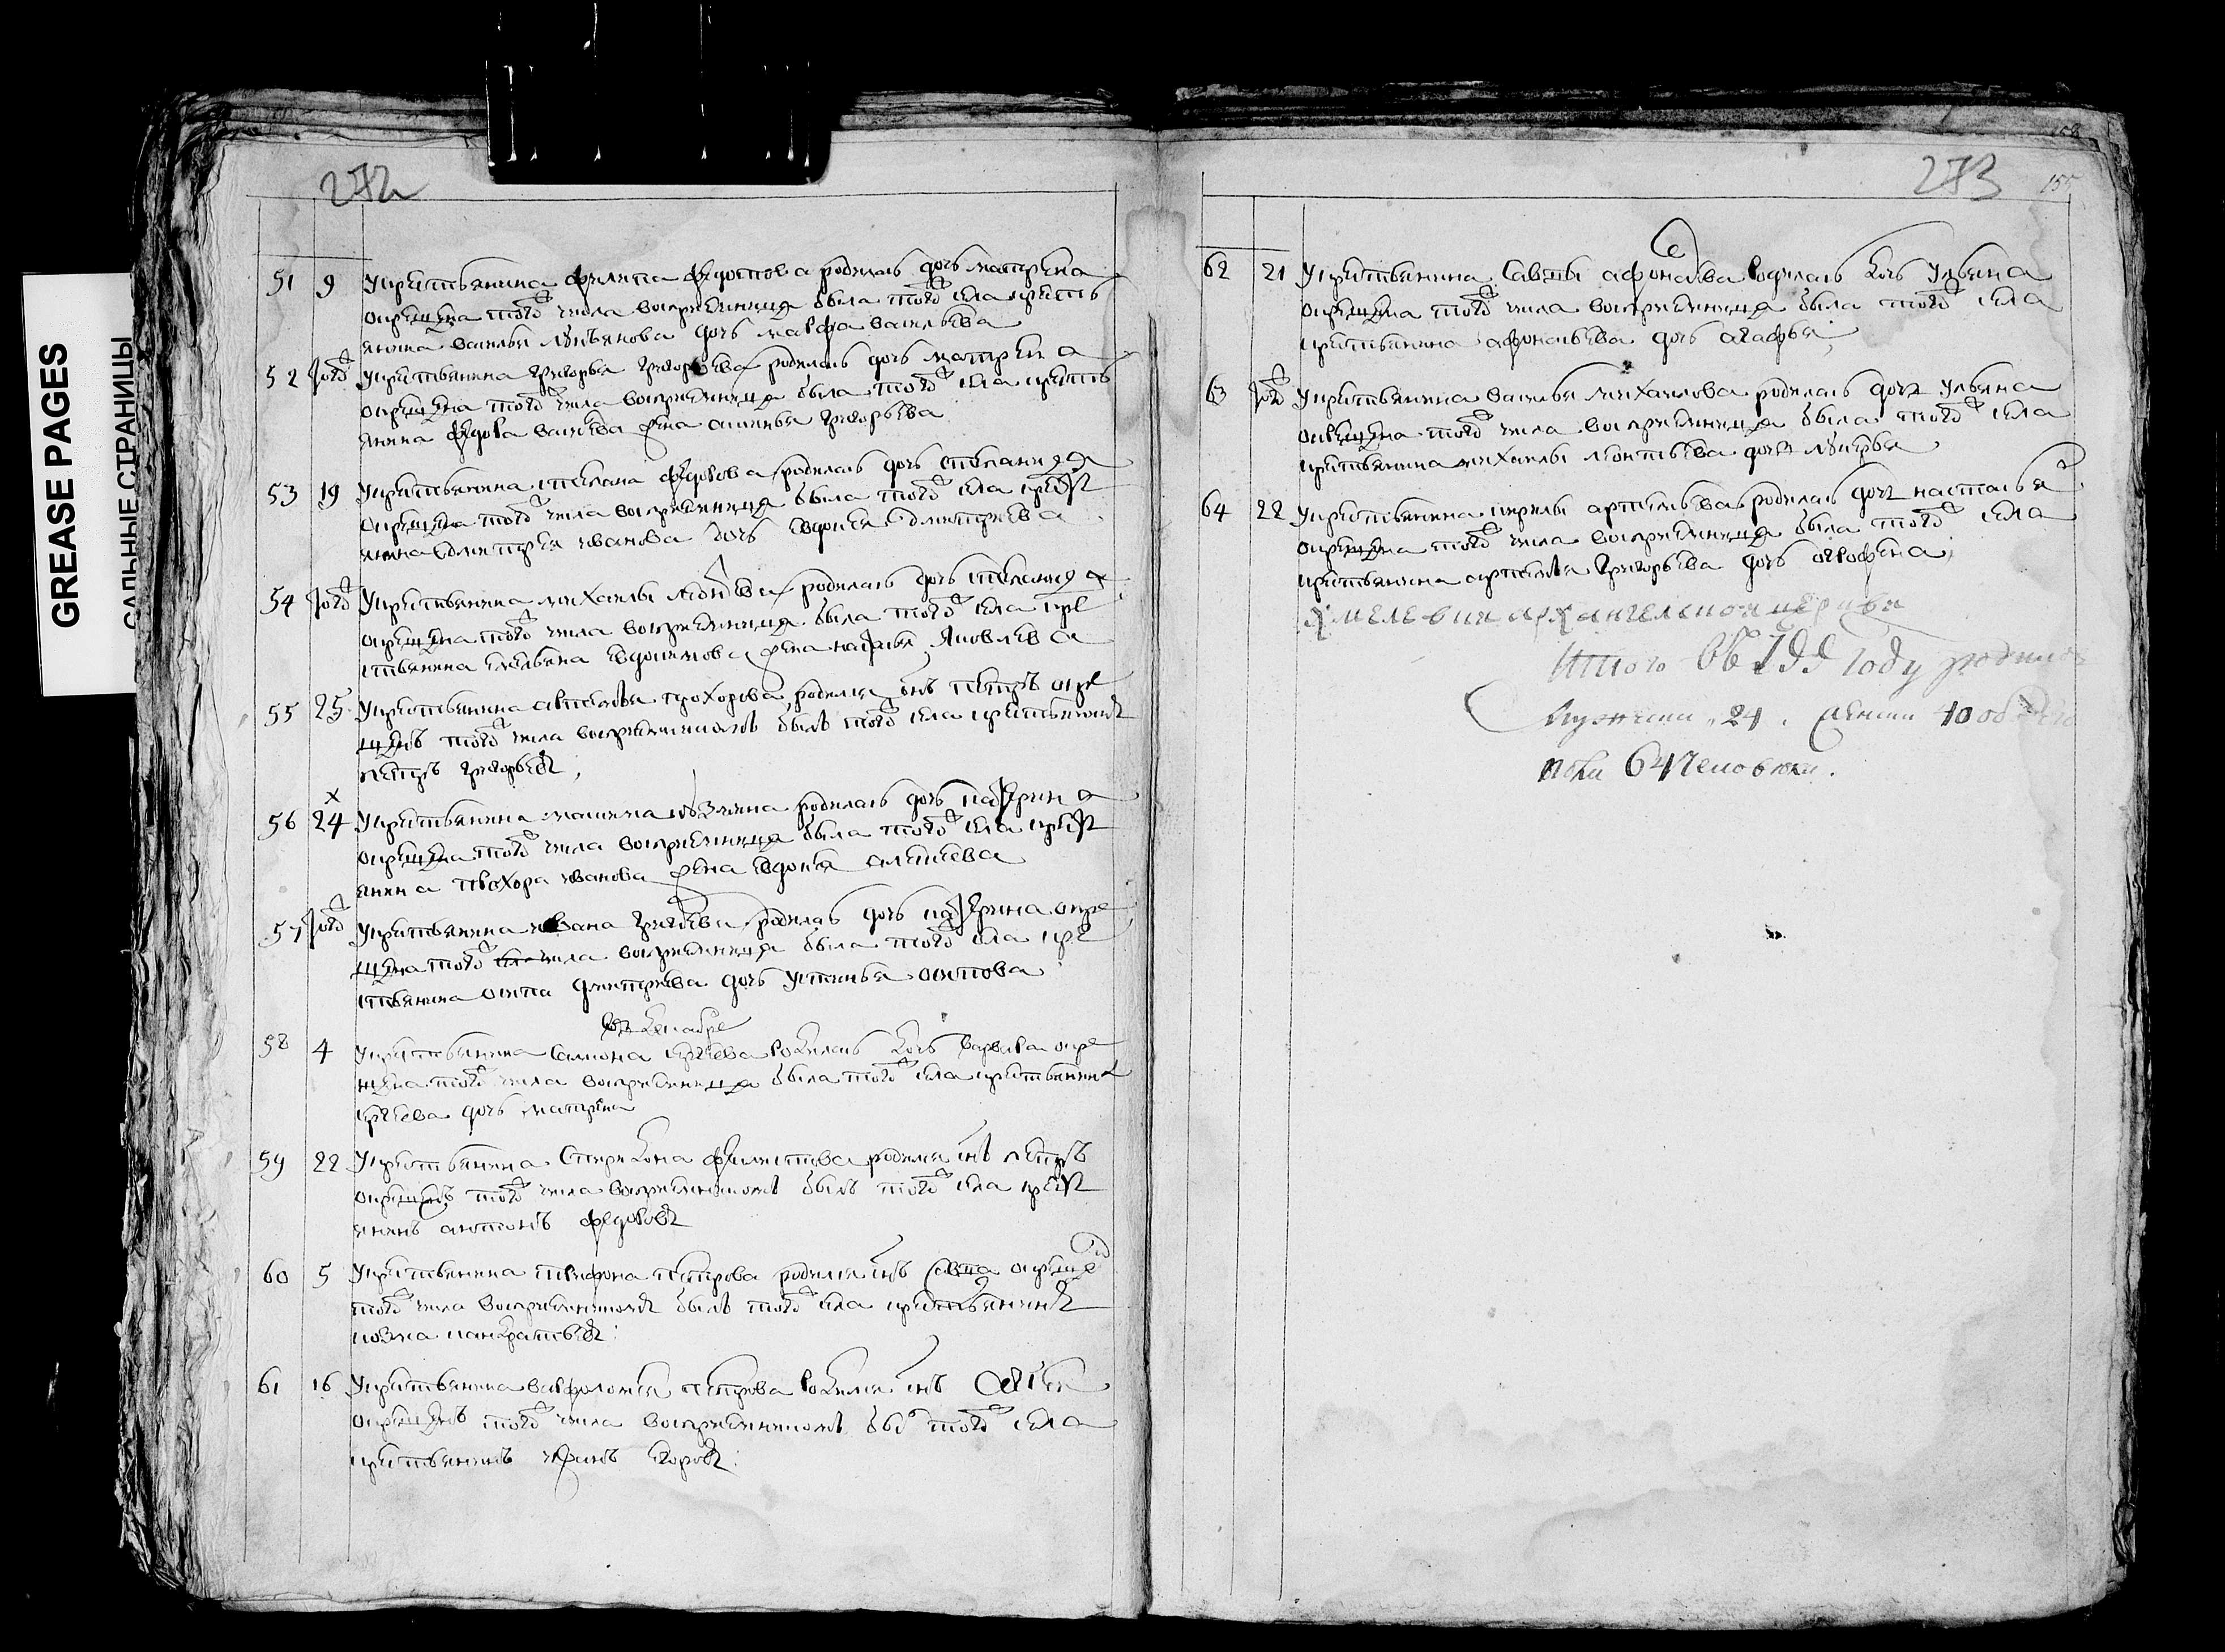 GREASE PAGES
САЛЬНЫЕ СТРАНИЦЫ
272
51 9 У крестьянина филипа федотова родилась дочь матрена
окрещена того числа восприемница была того села кресть
янина василья лукьянова дочь марфа васильева
52 того У крестьянина григорья григорьева родилась дочь матрена
окрещена того числа восприемница была того села кресть
янина федора васильева жена аксинья григорьева
53 19 У крестьянина степана федорова родилась дочь степанида
окрещена того числа восприемница была того села крест
янина дмитрея иванова дочь евдокея дмитриева
54 того У крестьянина михаилы родилась дочь степанида
окрещена того числа восприемница была того села кре
стьянина емельяна евдокимова жена наталья яковлева
55 25 У крестьянина артемья прохорова родился сынъ петръ окре
щенъ того числа восприемникомъ былъ того села крестьянинъ
петръ григорьевъ
56 24 У крестьянина максима козмина родилась дочь катерина
окрещена того числа восприемница была того села крест
янина прохора иванова жена евдокея алексеева
57 того У крестьянина ивана родилась дочь катерина окре
щена того числа восприемница была того села кре
стьянина осипа дмитриева дочь устинья осипова
въ декабре
58 4 У крестьянина самиона сергеева родилась дочь варвара окре
щена того числа восприемница была того села крестьянина
сергеева дочь матрена
59 22 У крестьянина спиридона филиппова родился сынъ петръ
окрещенъ того числа восприемникомъ былъ того села крест
янинъ антонъ федоровъ
60 5 У крестьянина трифона петрова родился сынъ савва окреще
того числа восприемникомъ былъ того села крестьянинъ
козма панкратьевъ
61 16 У крестьянина варфоломея петрова родился сынъ
окрещенъ того числа восприемникомъ былъ того села
крестьянинъ егоровъ
273
155
62 21 У крестьянина Саввы афонасьва родилась дочь Ульяна
окрещена того числа восприемница была того села
крестьянина афонасьева дочь агафья
63 того У крестьянина василья михаилова родилась дочь ульяна
окрещена того числа восприемница была того села
крестьянина михаилы леонтьева дочь лукерья
64 22 У крестьянина кирилы артемьева родилась дочь настасья
окрещена того числа восприемница была того села
крестьянина артемья григорьева дочь аграфена
архангельской церкви
Итого въ году родилось
Мужеска 24. женска 40 обоего
пола 64 человека.